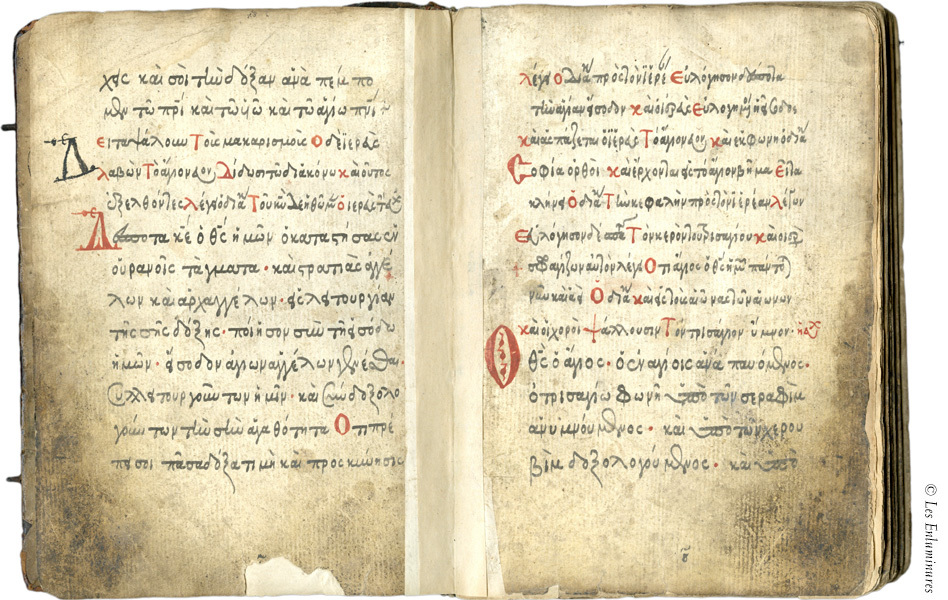 χῆς καὶ σοὶ τὴν δόξαν ἀναπέμπο
μεν τῶ πρὶ καὶ τῶ υἱῶ κὰ τῶ ἁγίω πνι
Εἶτα ψάλομεν Τοὺς μακαρισμοὺς Ὁ δὲ ἱερεὺς
λαβὼν Τὸ ἅγιον εὐαγ Δίδωσι τῶ διακόνω καὶ οὕτως
ἐξελθόντες λέγει ὁ διὰ Τοῦ κυ δεηθῶμεν ὁ ἱερεὺς
Δέσποτα κε ὁ θς ἡμῶν ὁ καταστήσας ἐν
οὐρανοῖς τάγματα · καὶ στρατιὰς ἀγγέ
λων καὶ ἀρχαγγέλων · εἰς λειτουργίαν
τῆς σῆς δόξης · ποίησον σὺν τῆ εἰσόδω
ἡμῶν · εἴσοδον ἁγίων ἀγγέλων γενέσθαι ·
Συλλειτουργούντων ἡμῖν · καὶ συνδοξολο
γούντων τὴν σὴν ἀγαθότητα Ὅτι πρέ
πει σοι πᾶσα δόξα τιμὴ καὶ προσκύνησις
λέγει Ὁ διὰ πρὸς τὸν ἱερέ Εὐλόγησον δέσποτα
τὴν ἁγίαν εἴσοδον καὶ ὁ ἱερεὺς Εὐλογημένη ἡ εἴσοδος
καὶ ἀσπάζεται ὁ ἱερεὺς Τὸ ἅγιον εὐαγ καὶ ἐκφωνεῖ ὁ διὰ
Σοφία ὀρθοὶ καὶ ἔρχονται εἰς τὸ ἅγιον βῆμα Εἶτα
κλήνει Ὁ διὰ Τὴν κεφαλὴν πρὸς τὸν ἱερέαν λέγων
Εὐλόγησον δέσποτα Τὸν κερὸν τοῦ τρισαγίου καὶ ὁ ἱερεὺς
σφαγίζων αὐτὸν λέγει Ὅτι ἅγιος ὁ θς ἡμῶν πάντοτε
νῦν καὶ ἀεὶ Ὁ διὰ καὶ εἰς τοὺς αἰῶνας τῶν αἰώνων
καὶ οἱ χοροὶ ψάλλουσιν Τὸν τρισάγιον ὕμνον · ἡ εὐχ
Ὁ θς ὁ ἅγιος · ὁ ἐν ἁγίοις ἀναπαυόμενος ·
ὁ τρισαγίω φωνῆ ὑπὸ τῶν σεραφὶμ
ἀνυμνούμενος · καὶ ὑπὸ τῶν χερου
βὶμ δοξολογούμενος · καὶ ὑπὸ
© Les Enluminures